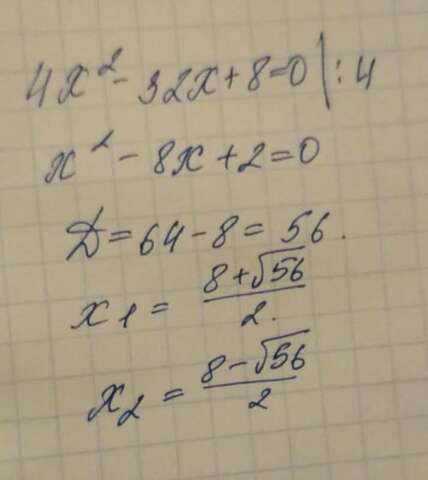 4x² - 32x + 8 = 0 | : 4
x² - 8x + 2 = 0
D = 64 - 8 = 56.
x₁ = (8 + √56) / 2.
x₂ = (8 - √56) / 2